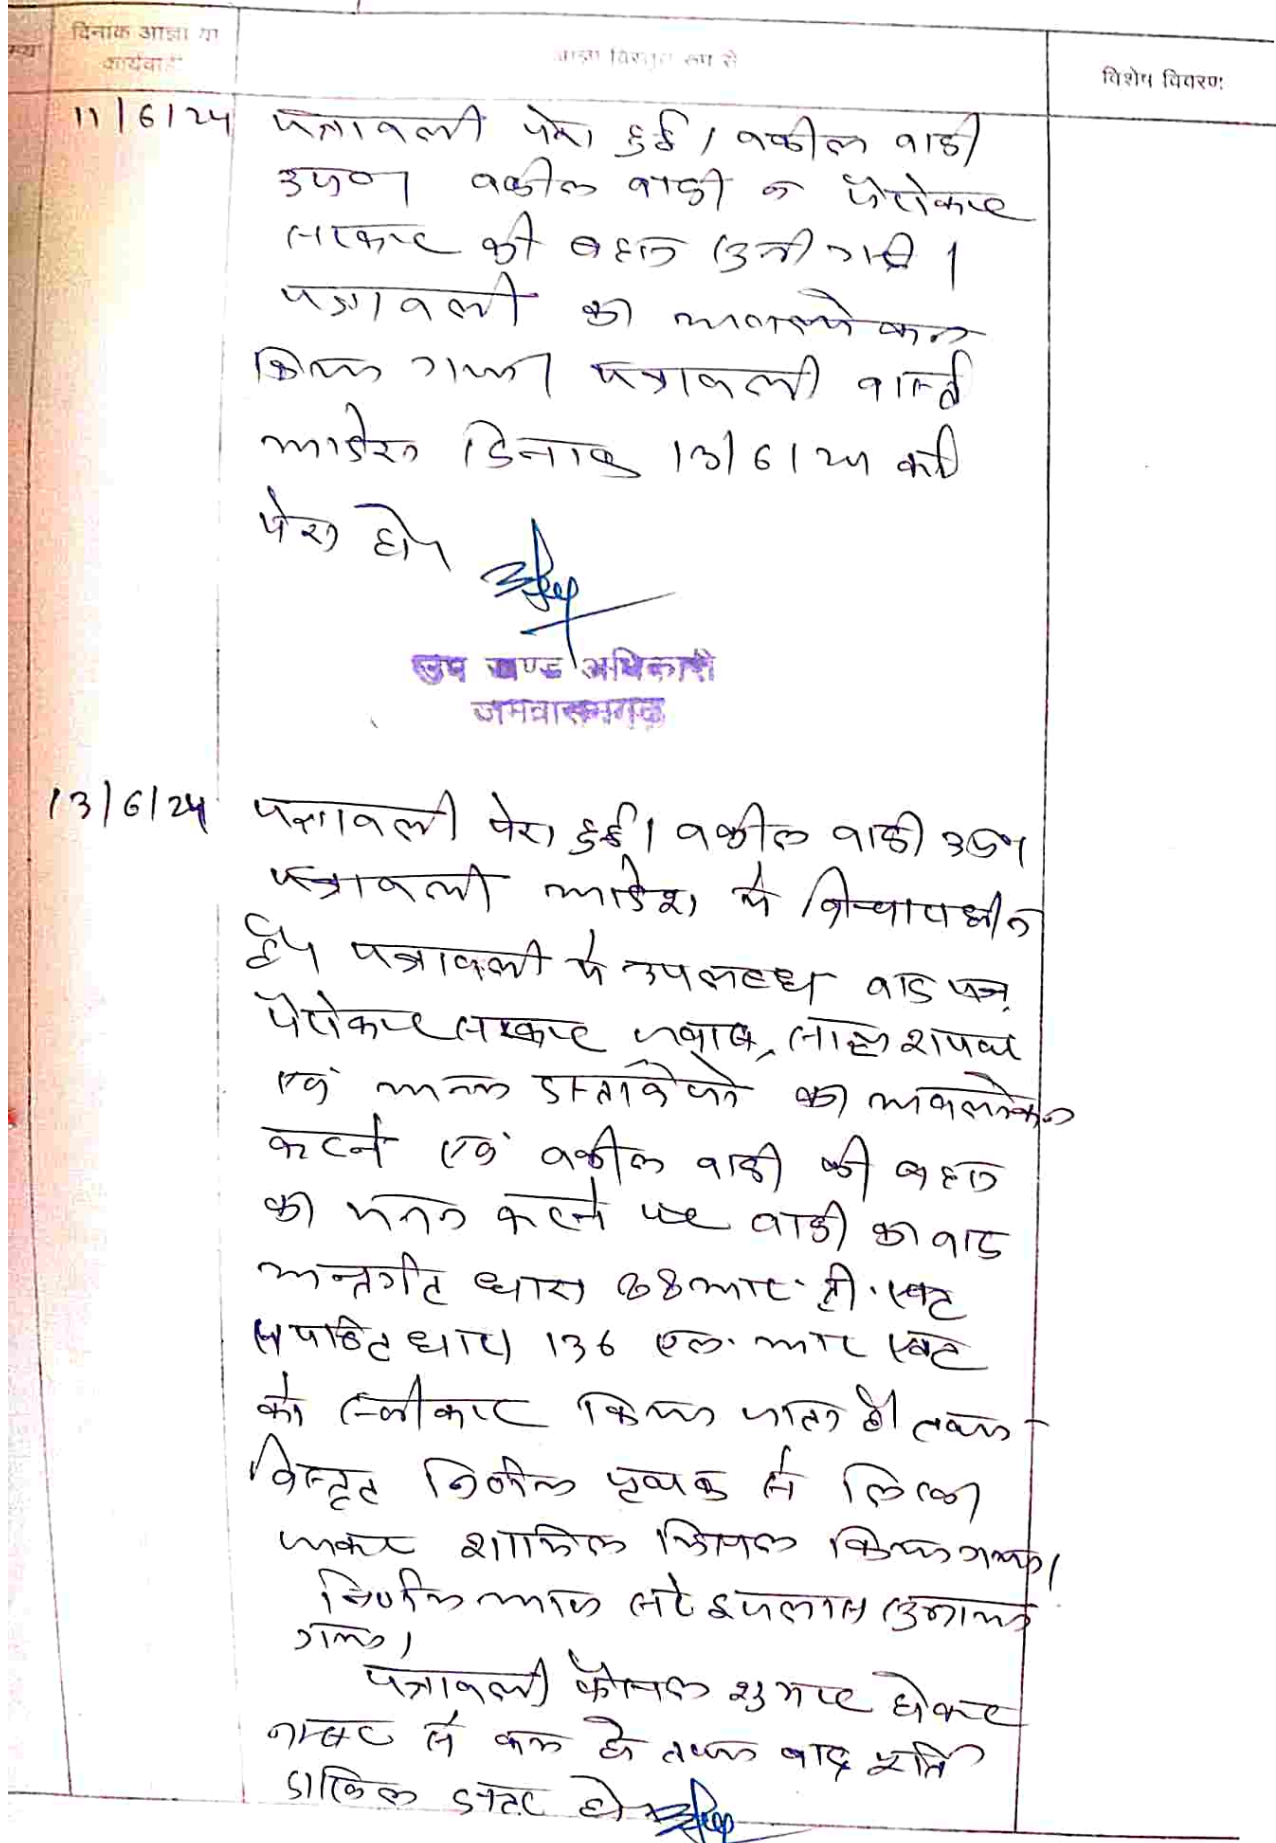 दिनांक आज्ञा या
कार्यवाही
आज्ञा विस्तृत रूप से
विशेष विवरण
11/6/24 पत्रावली पेश हुई। वकील वादी
उप0। वकील वादी व पैरोकार
सरकार की बहस सुनी गयी।
पत्रावली का अवलोकन
किया गया। पत्रावली वास्ते
आदेश दिनांक 13/6/24 को
पेश हो।
उप खण्ड अधिकारी
जमवारामगढ़
13/6/24 पत्रावली पेश हुई। वकील वादी उप0।
पत्रावली आदेश मे विचाराधीन
है। पत्रावली मे उपलब्ध वाद पत्र
पैरोकार सरकार जवाब, साक्ष्य शपथ
एवं अन्य दस्तावेजो का अवलोकन
करने एवं वकील वादी की बहस
का मनन करने पर वादी का वाद
अन्तर्गत धारा 88 आर.टी.एक्ट
सपठित धारा 136 एल.आर एक्ट
को स्वीकार किया जाता है। तथा
विस्तृत निर्णय पृथक से लिखा
जाकर शामिल मिसल किया गया।
निर्णय आज सरे इजलास सुनाया
गया।
पत्रावली फैसल शुमार होकर
नम्बर से कम हो तथा बाद पूर्ति
दाखिल दफ्तर हो।